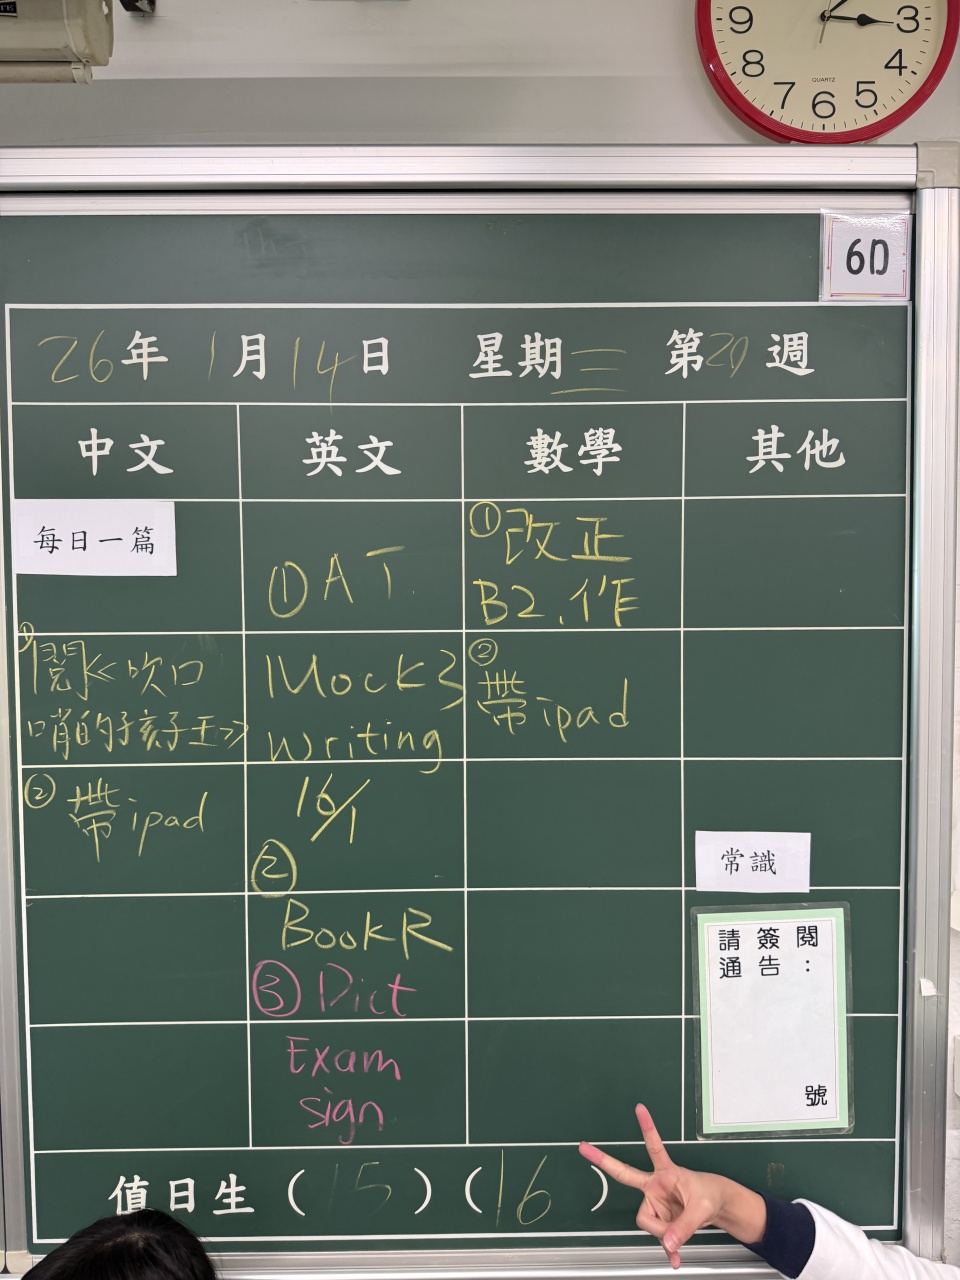 9
3
8
4
7
6
5
QUARTZ
6D
26年 1月14日 星期三 第20週
中文 英文 數學 其他
每日一篇
① 閱《吹口
哨的孩子王》
② 帶ipad
① AT
Mock3
writing
16/1
②
BookR
③ Dict
Exam
sign
① 改正
B2.作
② 帶ipad
常識
請簽閱
通告：
號
值日生（15）（16）